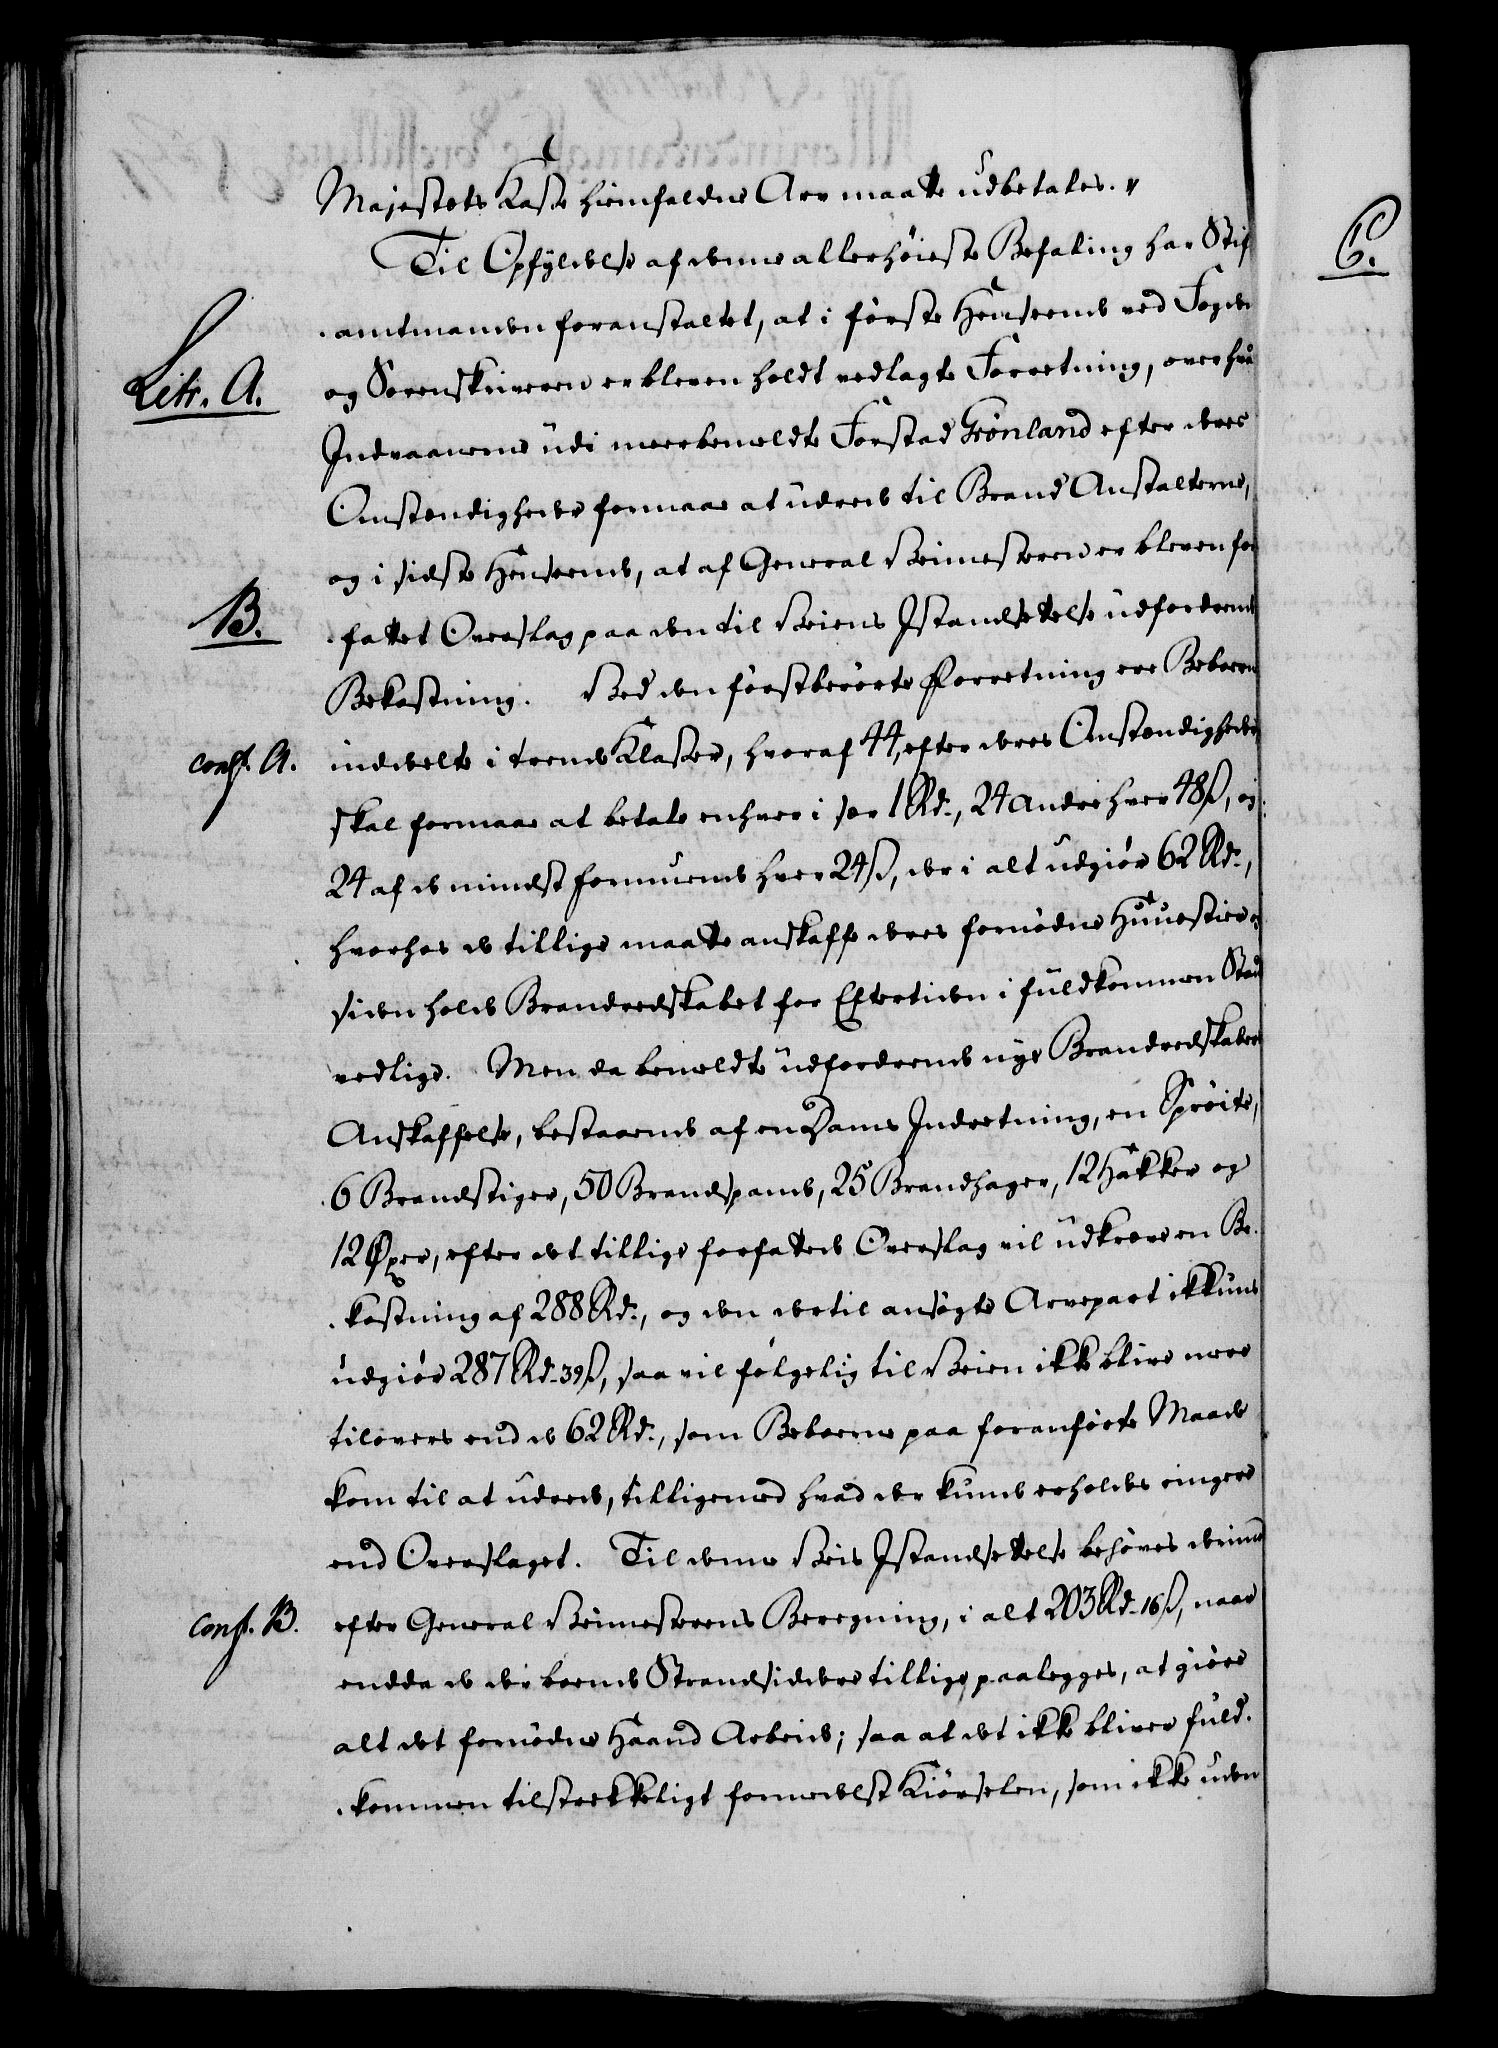 Majestets Kasse hiemfaldne Arv maatte udbetales. "
Til Opfyldelse af denne allerhøieste Befaling har Stif
C.
amtmanden foranstaltet, at i første Henseende ved Fogden
Litr. A.
og Sorenskriveren er bleven holdt vedlagte Forretning, over hva
Indvaanerne udi meerbemeldte Forstad Grönland efter deres
Omstendigheder formaae at udrede til Brand Anstalterne,
og i sidste Henseende, at af General Veimesteren er bleven for
B.
fattet Overslag paa den til Veiens Istandsettelse udfordrende
Bekostning. Ved den førstberørte Forretning ere Beboerne
conf. A.
inddeelte i trende Klasser, hvoraf 44, efter deres Omstendigheder
skal formaae at betale enhver i sær 1 Rd., 24 andre hver 48 ß, og
24 af de mindst formuende hver 24 ß, der i alt udgiør 62 Rd.,
hvorhos de tillige maatte anskaffe deres fornødne Huusstier og
siden holde Brandredskabet for Eftertiden i fuldkommen Stand
vedlige. Men da bemeldte udfordrende nye Brandredskabers
Anskaffelse, bestaaende af en Dams Indretning, en Sprøite,
6 Brandstiger, 50 Brandspande, 25 Brandhager, 12 Hakker og
12 Øxer, efter det tillige forfattede Overslag vil udkreve en Be-
kostning af 288 Rd., og den dertil ansøgte Arvepart ikkuns
udgiør 287 Rd. 39 ß, saa vil følgelig til Veien ikke blive mere
tilovers end de 62 Rd., som Beboerne paa foranførte Maade
kom til at udrede, tilligemed hvad der kunde erholdes ringere
end Overslaget. Til denne Veis Istandsettelse behøves derimod
conf. B.
efter General Veimesterens Beregning, i alt 203 Rd. 16 ß, naar
endda de der boende Strandsiddere tillige paalegges, at giøre
alt det fornødne Haand Arbeide; saa at det ikke bliver fuld-
kommen tilstrekkeligt formedelst Kiørselen, som ikke uden